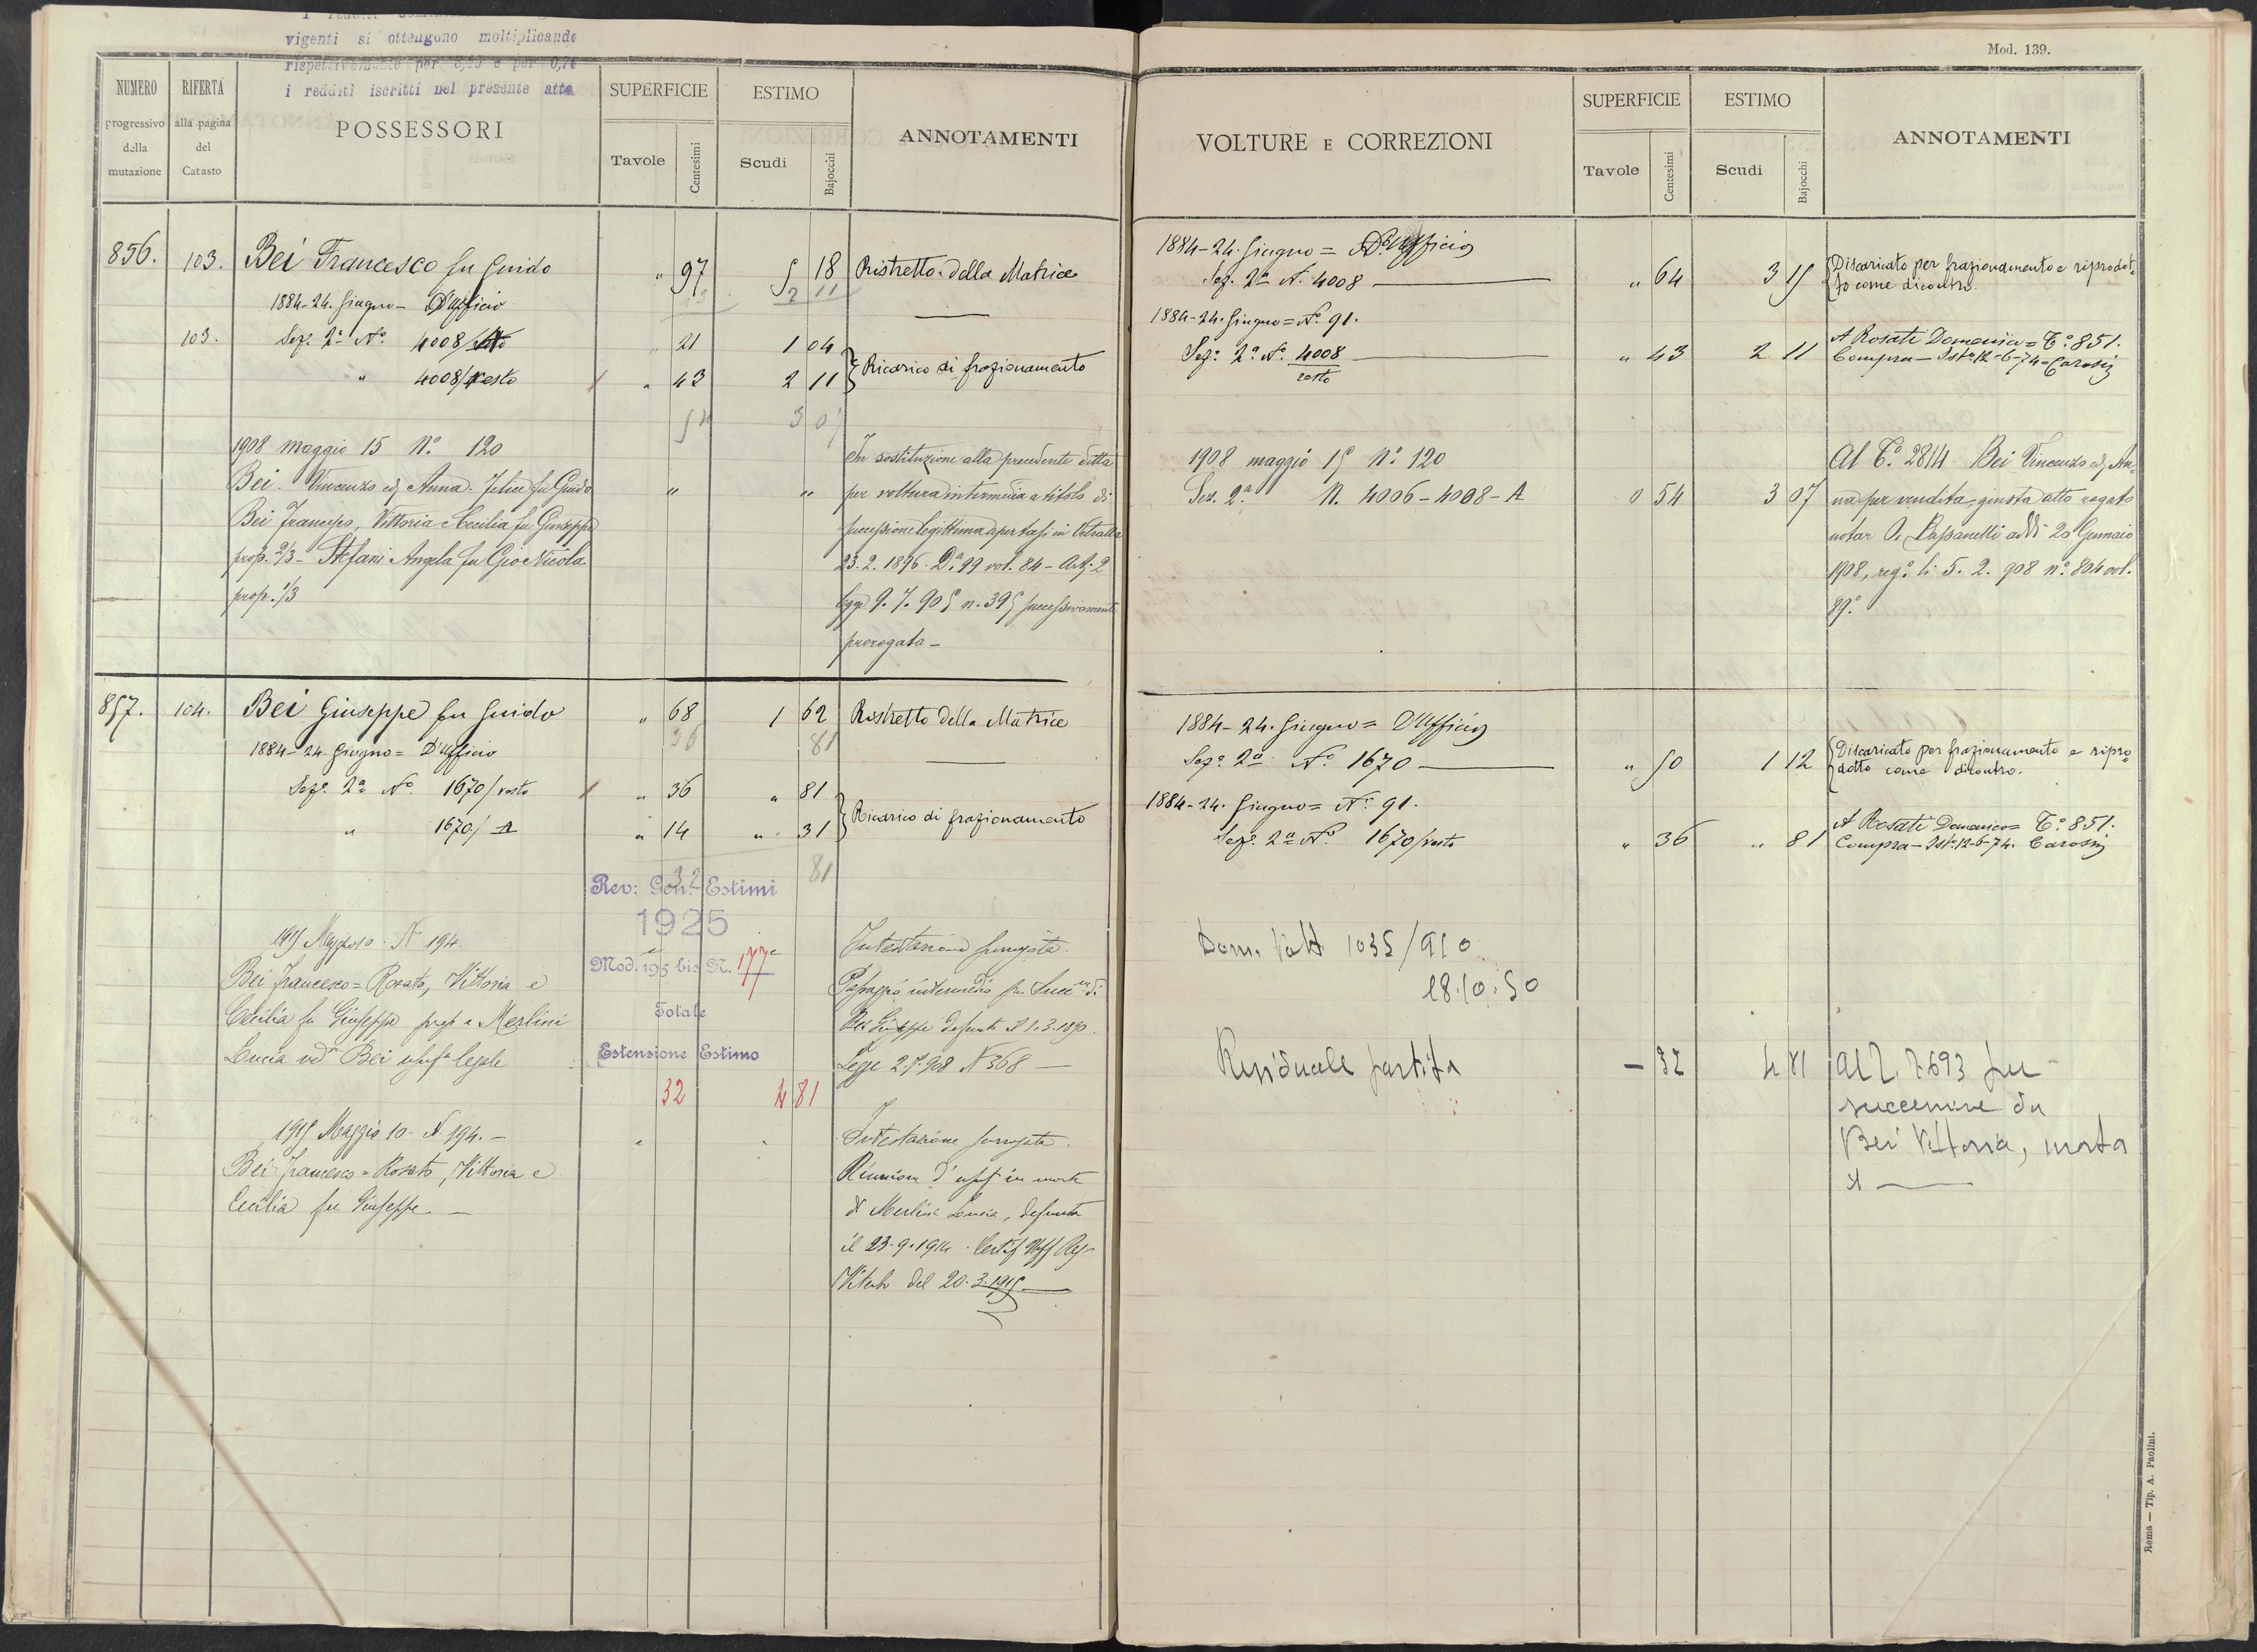 vigenti si ottengono moltiplicando
rispettivamente per
i redditi iscritti nel presente atto
NUMERO
progressivo
della
mutazione
RIFERTA
alla pagina
del
Catasto
POSSESSORI
SUPERFICIE
Tavole
Centesimi
ESTIMO
Scudi
Bajocchi
ANNOTAMENTI
856. 103. Bei Francesco fu Guido " 97 5 18 Ristretto della Matrice
2 11
1884-24. Giugno - D'Ufficio
103. Sez. 2a No. 4008/ " 21 1 04
" 4008/resto " 43 2 11 } Ricarico di frazionamento
54 3 07
1908 maggio 15 No. 120
Bei Vincenzo ed Anna. Felice fu Guido " "
Bei Francesco, Vittoria e Cecilia fu Giuseppe
prop. 2/3 - Stefani Angela fu Gio Nicola
prop. 1/3
In sostituzione alla precedente ditta
per voltura intermedia a titolo di
successione legittima apertasi in Vetralla
23. 2. 1896. Da. 99 vol. 84 - Art. 2
legge 9. 7. 905 n. 395 successivamente
prorogata -
857. 104. Bei Giuseppe fu Guido " 68 1 62 Ristretto della Matrice
36 81
1884-24. Giugno = D'Ufficio
Sez. 2a No. 1670/resto " 36 " 81
" 1670/A " 14 " 31 } Ricarico di frazionamento
32 81
Rev: Gen. Estimi
1925
Mod. 195 bis N. 177
Totale
Estensione Estimo
32 4 81
1915 Maggio 10 - N 194.
Bei Francesco = Rosato, Vittoria e
Cecilia fu Giuseppe prop e Merlini
Lucia ved Bei usuf legale
Intestazione surrogata.
Passaggio intermedio per Succ di
Bei Giuseppe defunto il 1.3.1890.
Legge 2.7.908 N 368 -
1915 Maggio 10 - N. 194. -
Bei Francesco = Rosato, Vittoria e
Cecilia fu Giuseppe -
Intestazione surrogata.
Riunione d'usuf in morte
di Merlini Lucia, defunta
il 23-9-1914. Certif Uff Reg
Viterbo del 20.3.1915
Mod. 139.
VOLTURE E CORREZIONI
SUPERFICIE
Tavole
Centesimi
ESTIMO
Scudi
Bajocchi
ANNOTAMENTI
1884-24. Giugno = D'Ufficio
Sez. 2a N. 4008 " 64 3 15 { Discaricato per frazionamento e riprodot-
to come dicontro.
1884-24. Giugno = No. 91.
Sez. 2a No. 4008 " 43 2 11
resto
A Rosati Domenico = To. 851.
Compra - Isto. 12-6-74 - Carosi
1908 maggio 15 No. 120
Sez. 2a N. 4006 - 4008 - A 0 54 3 07
Al To. 2814 Bei Vincenzo ed An-
na per vendita, giusta atto rogato
notar Bassanelli addì 20 Gennaio
1908, rego. li 5. 2. 908 no. 804 vol.
89.
1884-24. Giugno = D'Ufficio
Sez. 2a No. 1670 " 50 1 12 { Discaricato per frazionamento e ripro-
dotto come dicontro.
1884-24. Giugno = No. 91.
Sez. 2a No. 1670/resto " 36 " 81
A Rosati Domenico = To. 851.
Compra - Isto. 12-6-74. Carosi
Dom. Volt. 1035/910
18.10.50
Residuale partita - 32 4 81
Al T. 7693 per
successione da
Bei Vittoria, morta
il
Roma — Tip. A. Paolini.